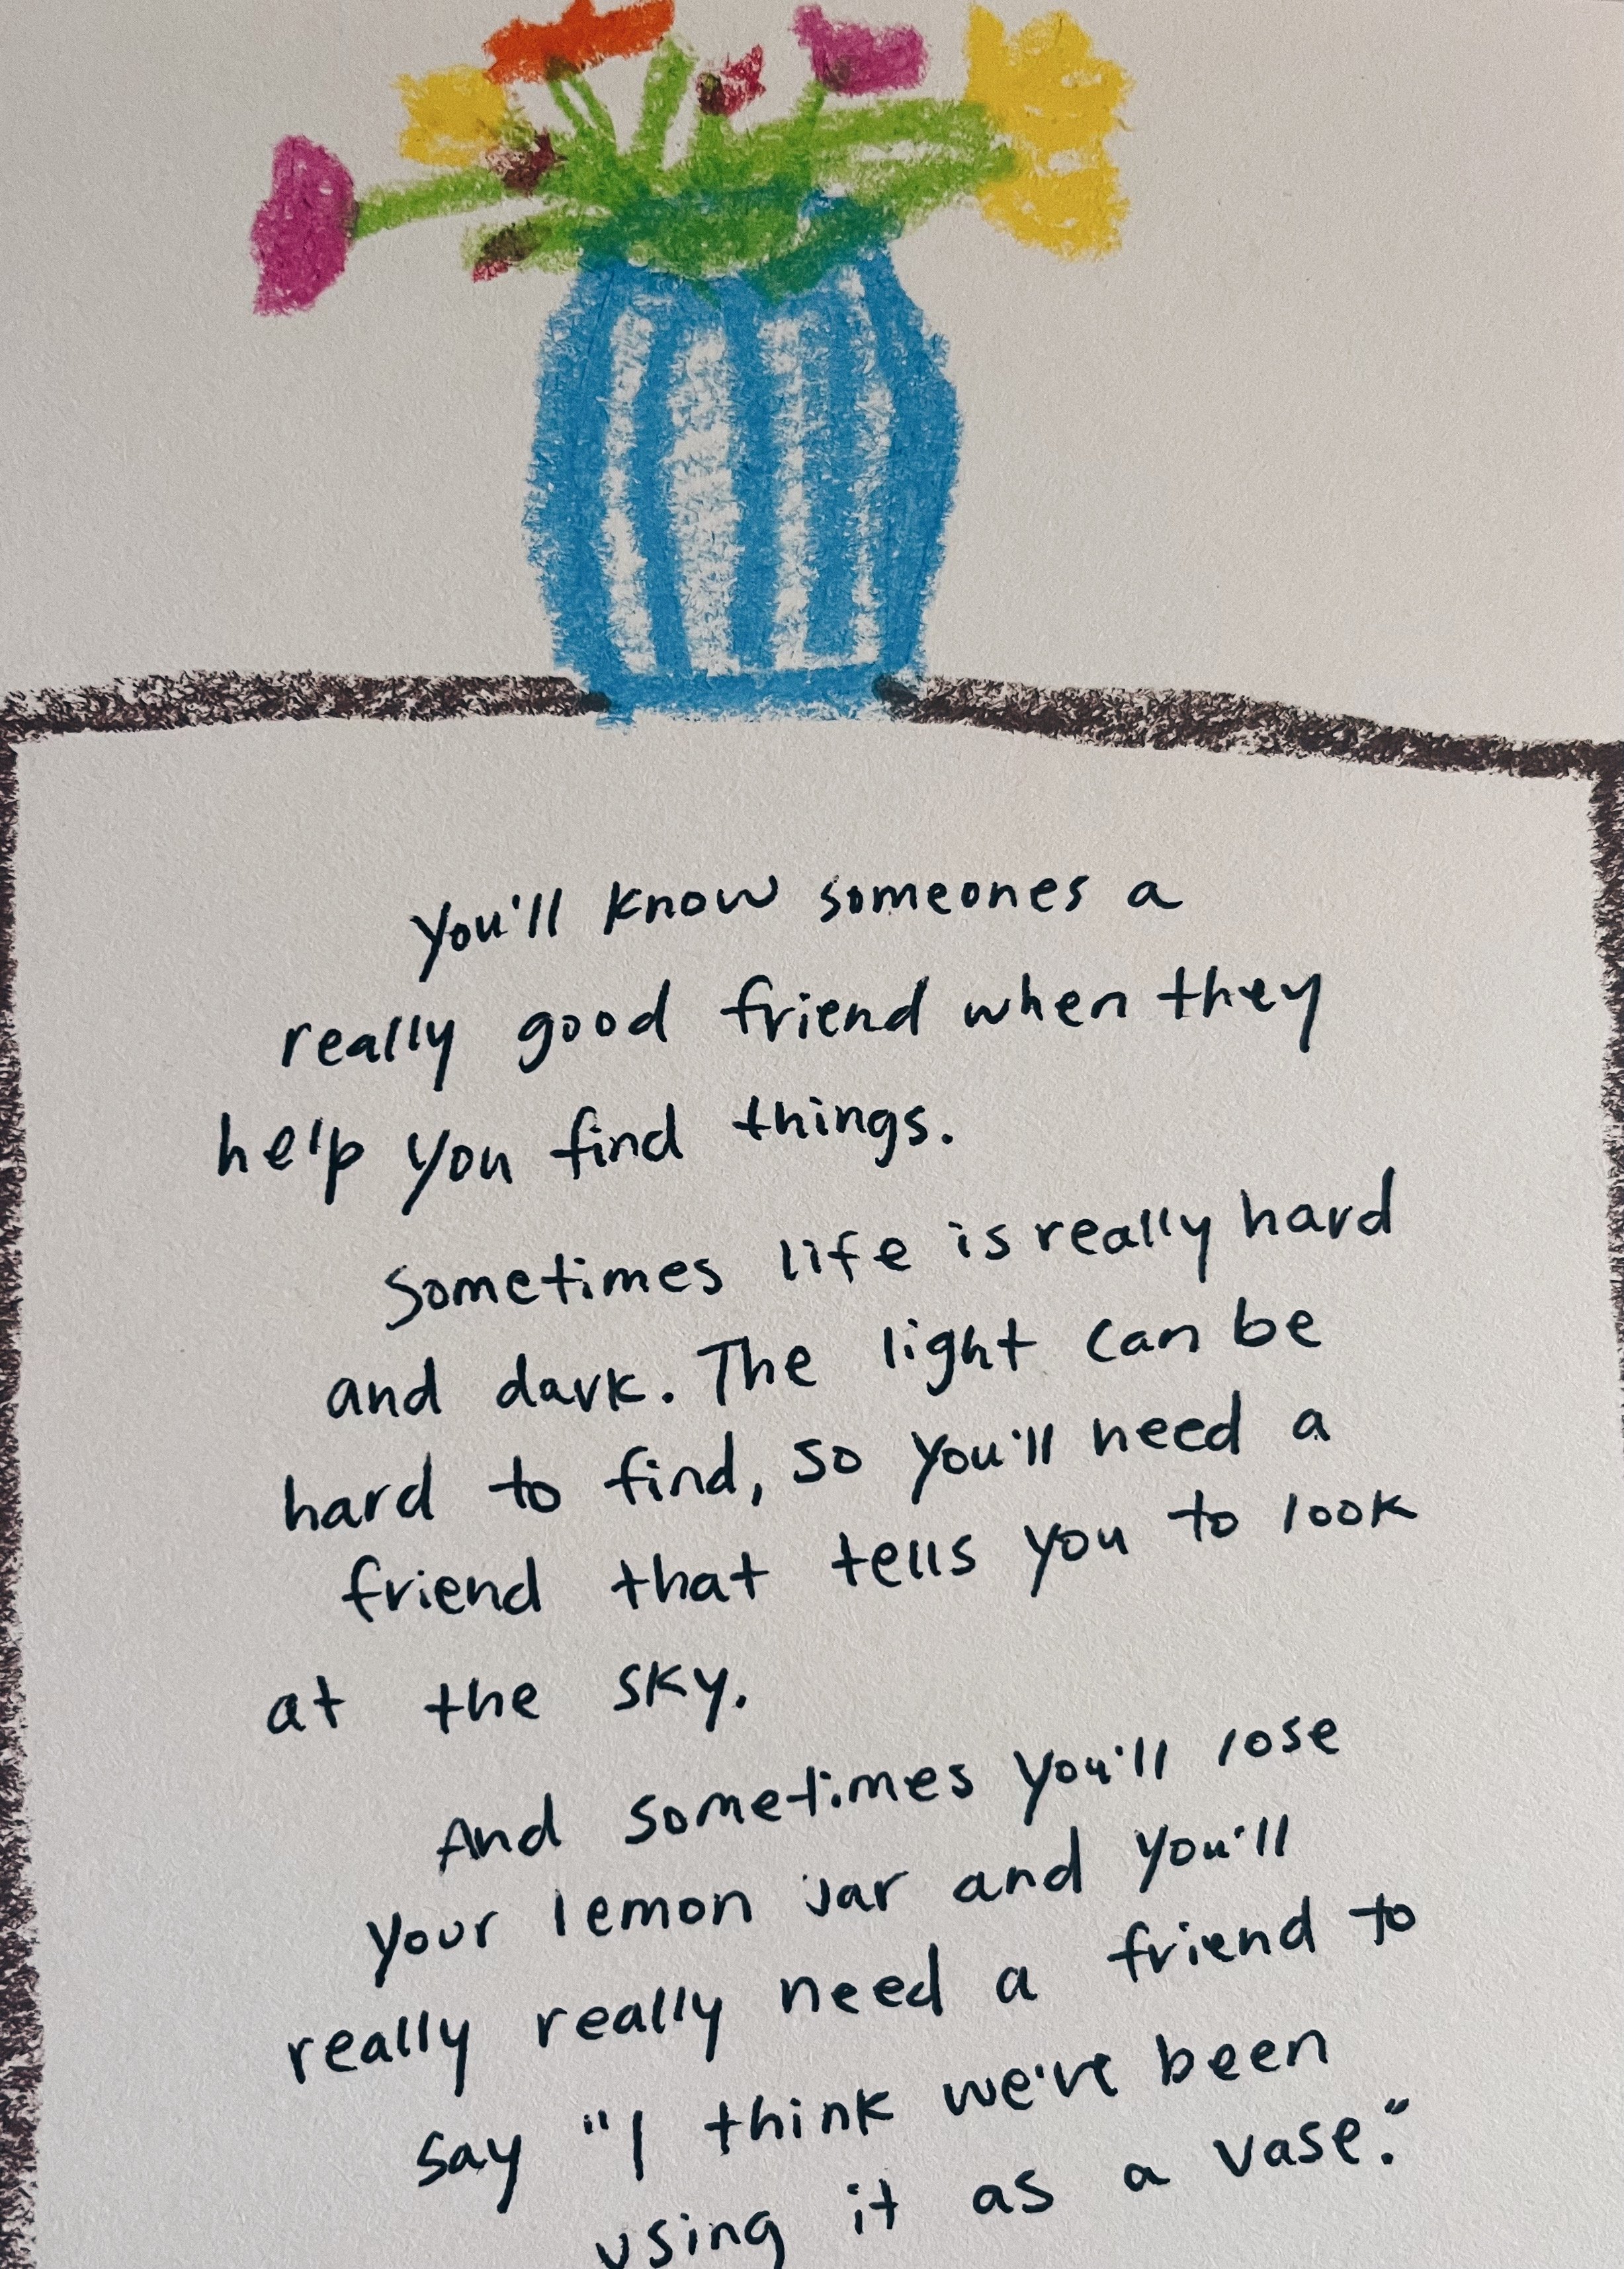 You'll know someones a
really good friend when they
help you find things.
Sometimes life is really hard
and dark. The light can be
hard to find, so you'll need a
friend that tells you to look
at the sky.
And sometimes you'll lose
your lemon jar and you'll
really really need a friend to
say "I think we've been
using it as a vase."